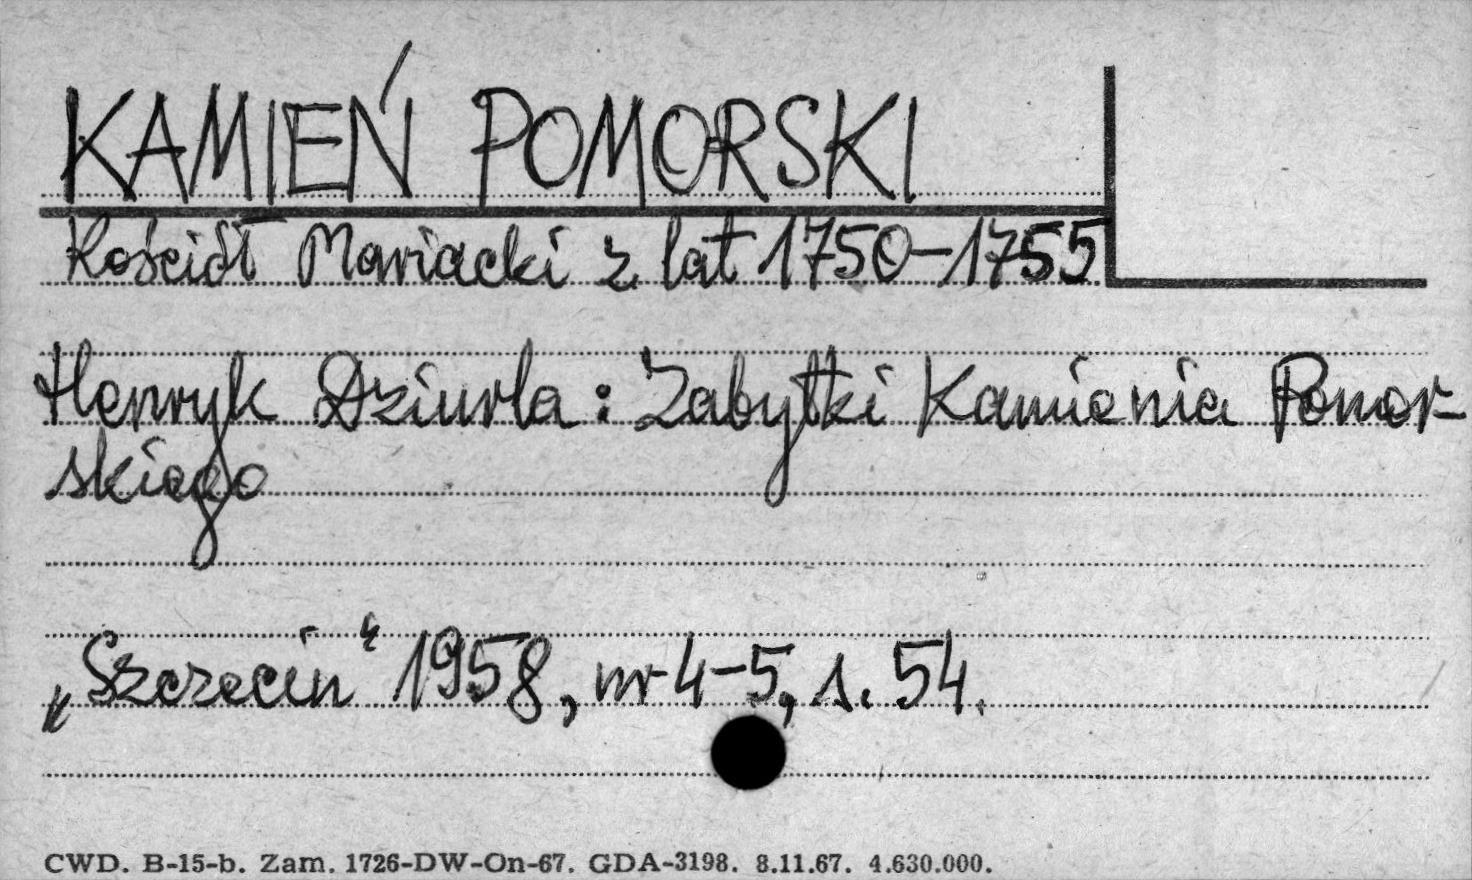 KAMIEŃ POMORSKI
Kościół Mariacki z lat 1750-1755
Henryk Dziurla: Zabytki Kamienia Pomor-
skiego
„Szczecin" 1958, nr 4-5, s. 54.
CWD. B-15-b. Zam. 1726-DW-On-67. GDA-3198. 8.11.67. 4.630.000.